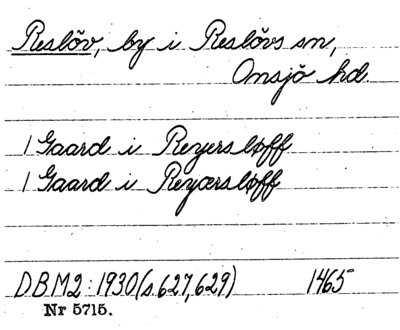 Reslöv, by i Reslövs sn,
Onsjö hd.
1 Gaard i Reyersløff
1 Gaard i Reyærsløff
DBM2: 1930 (s. 627, 629) 1465
Nr 5715.